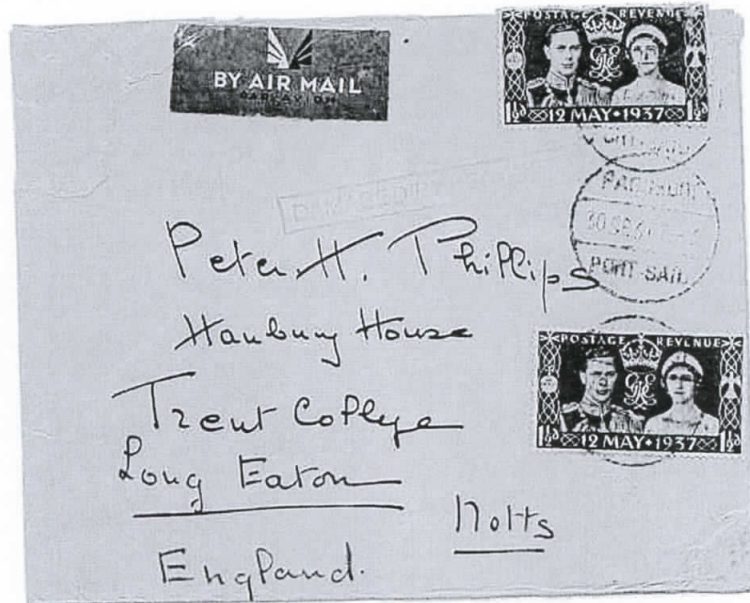 BY AIR MAIL
PAR AVION
POSTAGE REVENUE
1½D 12 MAY • 1937 1½D
PORT-SAID
DAMAGED BY
PAQUEBOT
30 SE
PORT-SAID
Peter. H. Phillips
Hanbury House
Trent College
Long Eaton
Notts
England.
POSTAGE REVENUE
1½D 12 MAY • 1937 1½D